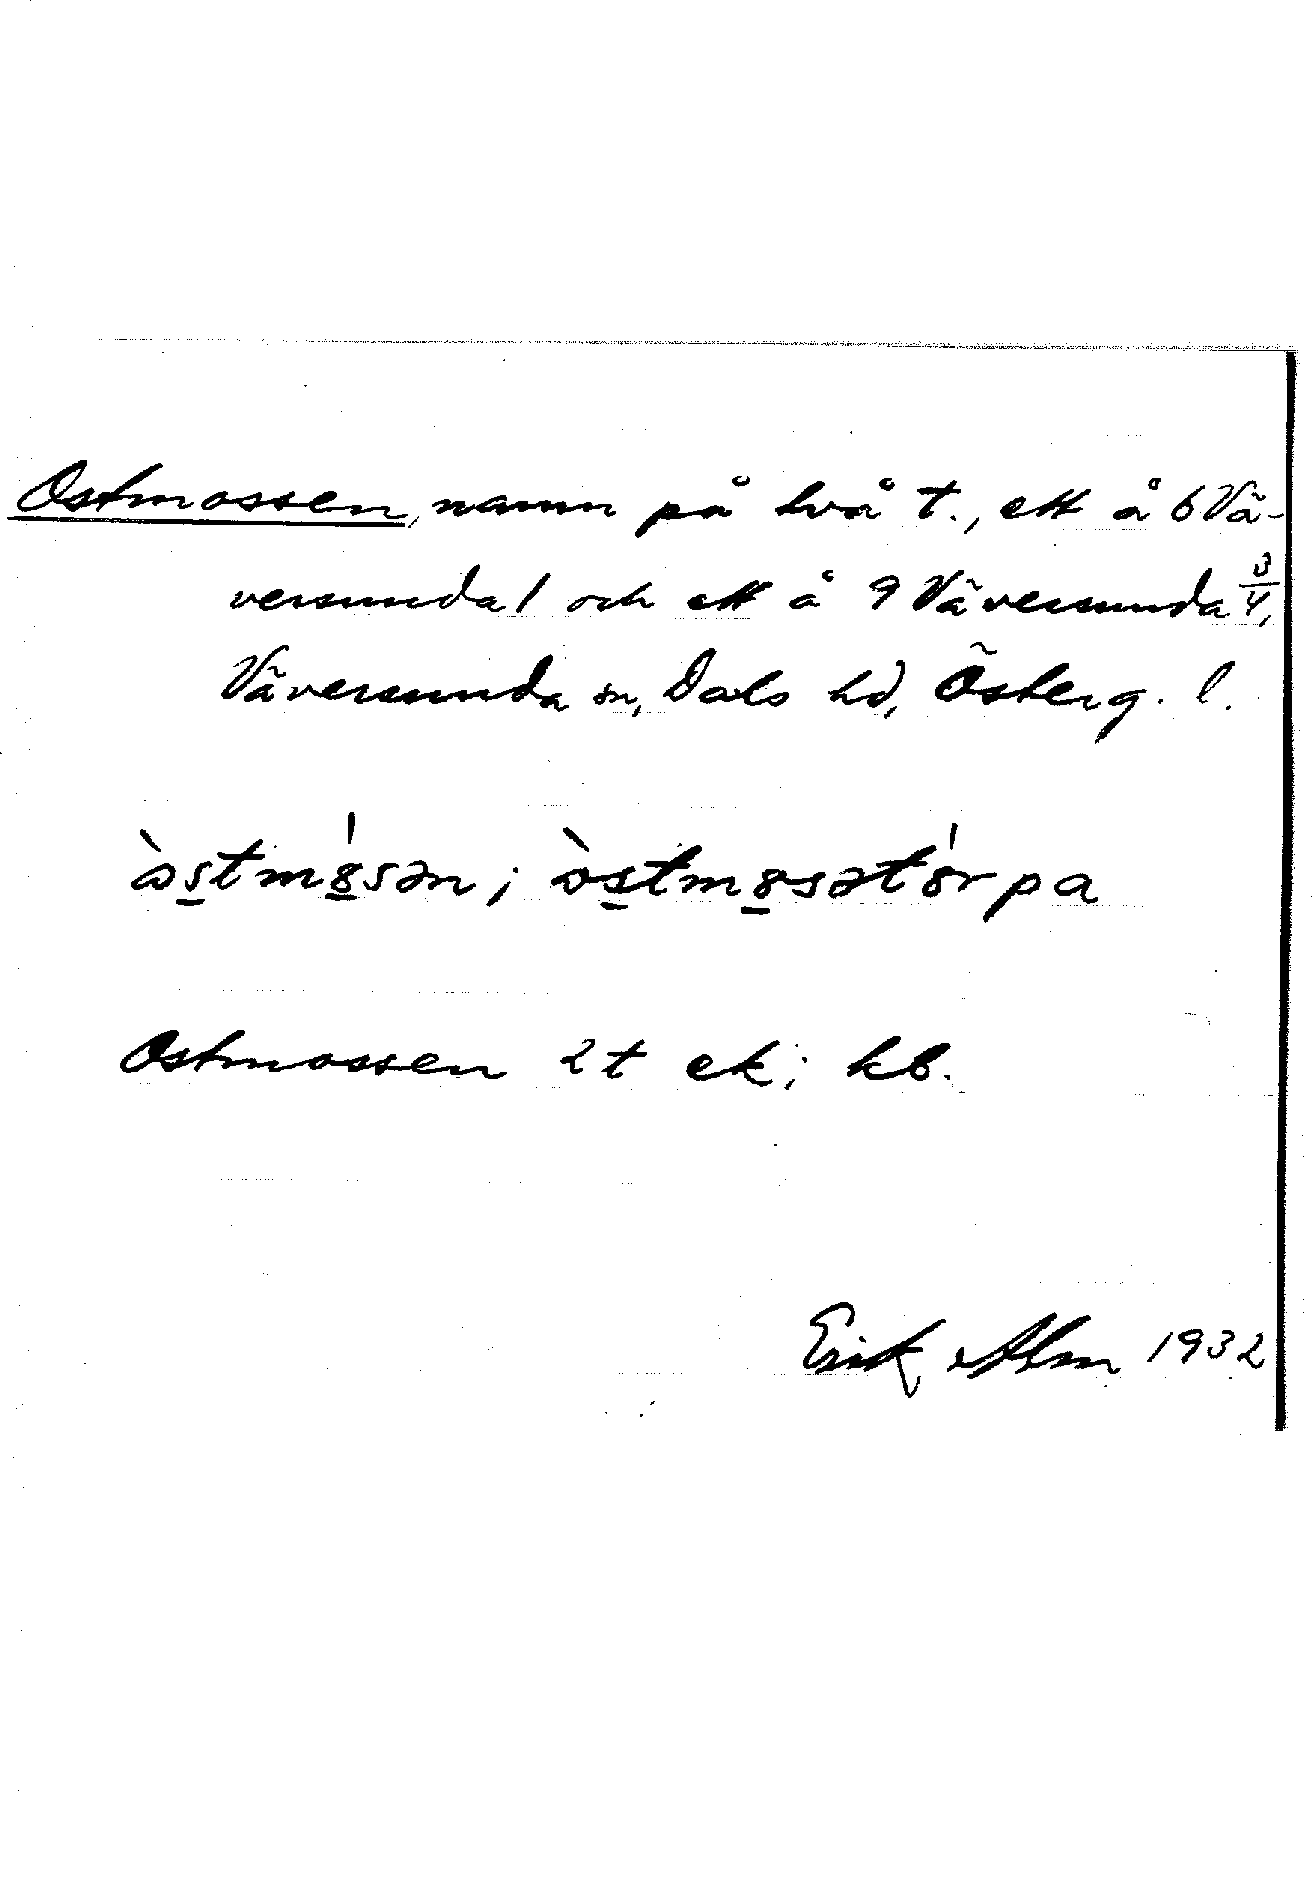 Ostmossen, namn på två t., ett å 6 Vä-
versunda 1 och ett å 9 Väversunda 3/4,
Väversunda sn, Dals hd, Österg. l.
òstm8́sən; òstm8sət8́rpa
Ostmossen 2 t ek; kb.
Erik Alm 1932